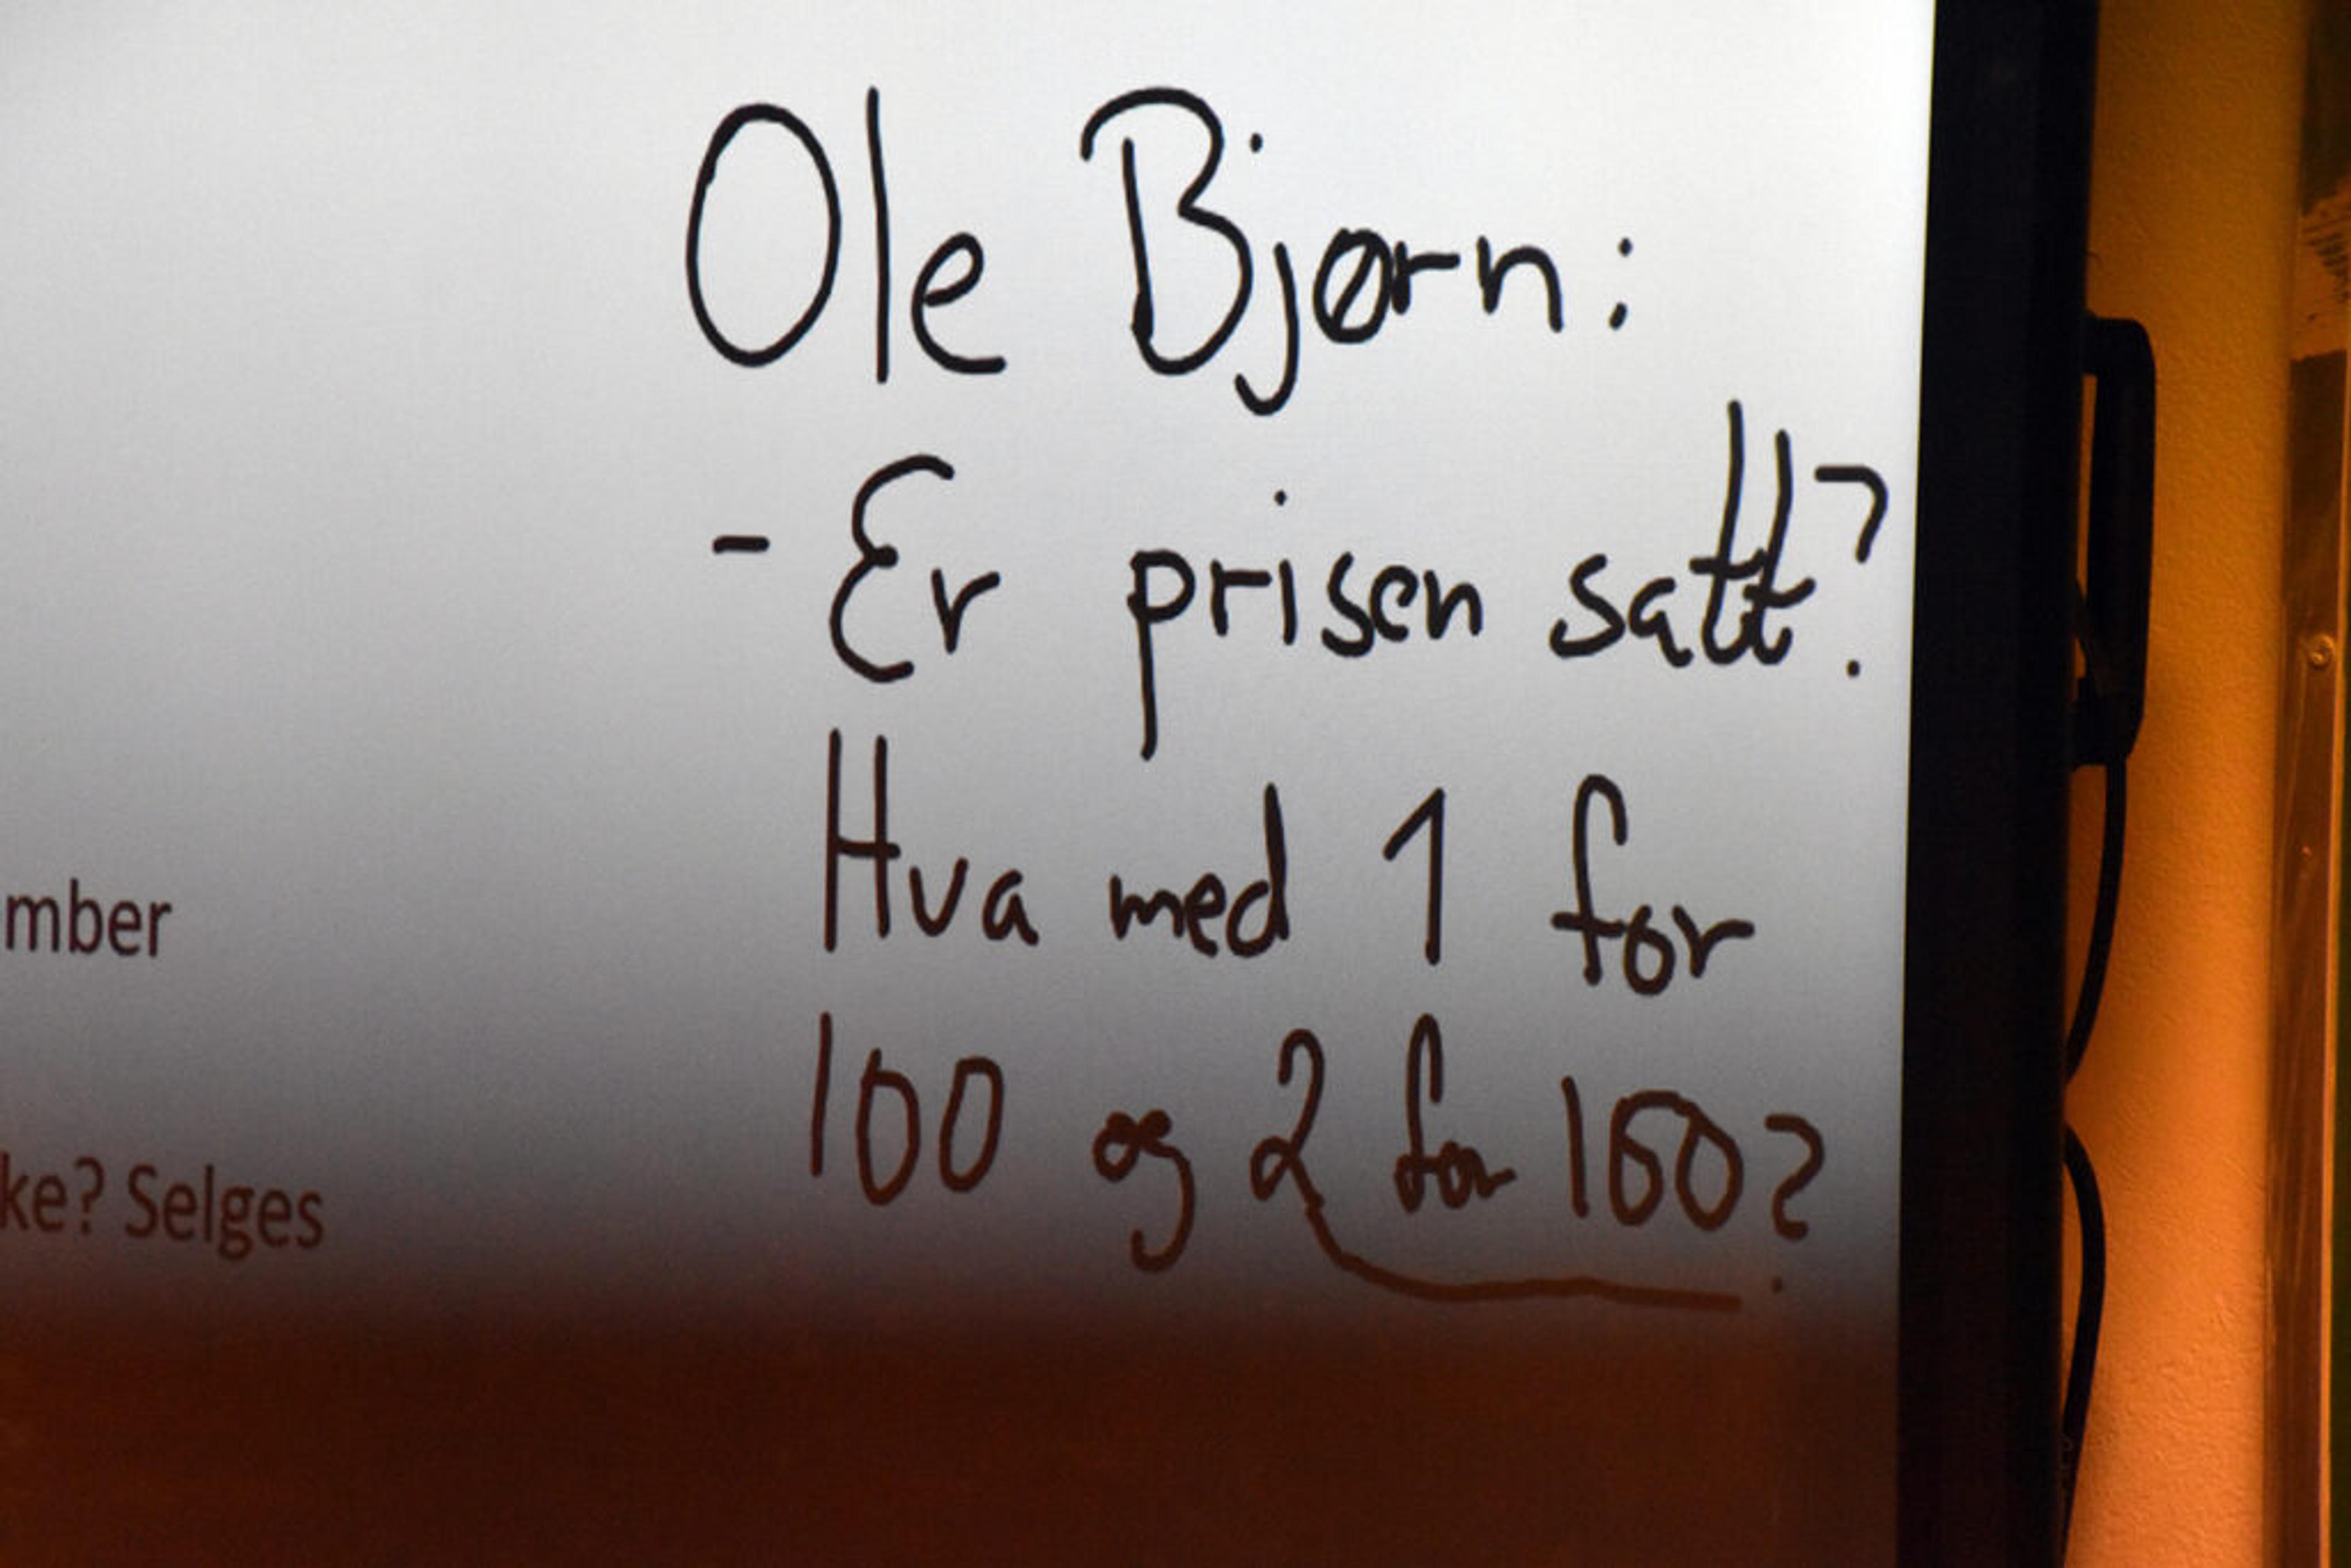 Ole Bjørn:
- Er prisen satt?
Hva med 1 for
100 og 2 for 160?
mber
ke? Selges